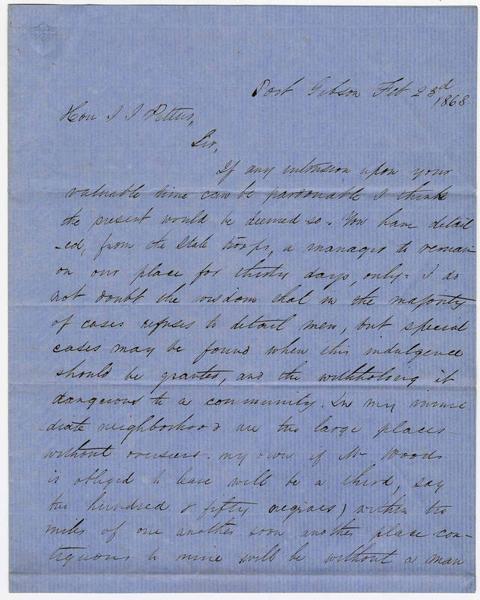 Port Gibson Feb 23rd 1868
Hon J J Pettus,
Sir,
If any intrusion upon your
valuable time can be pardonable I think
the present would be deemed so. You have detail
-ed, from the State troops, a manager to remain
on our place for thirty days, only. I do
not doubt the wisdom that in the majority
of cases refuses to detail men, but special
cases may be found when this indulgence
should be granted, and the withholding it
dangerous to a community. In my imme
diate neighborhood are two large places
without overseers. my own if Mr Woods
is obliged to leave will be a third, say
two hundred & fifty negroes) within two
miles of one another soon another place con-
tiguous to mine will be without a man